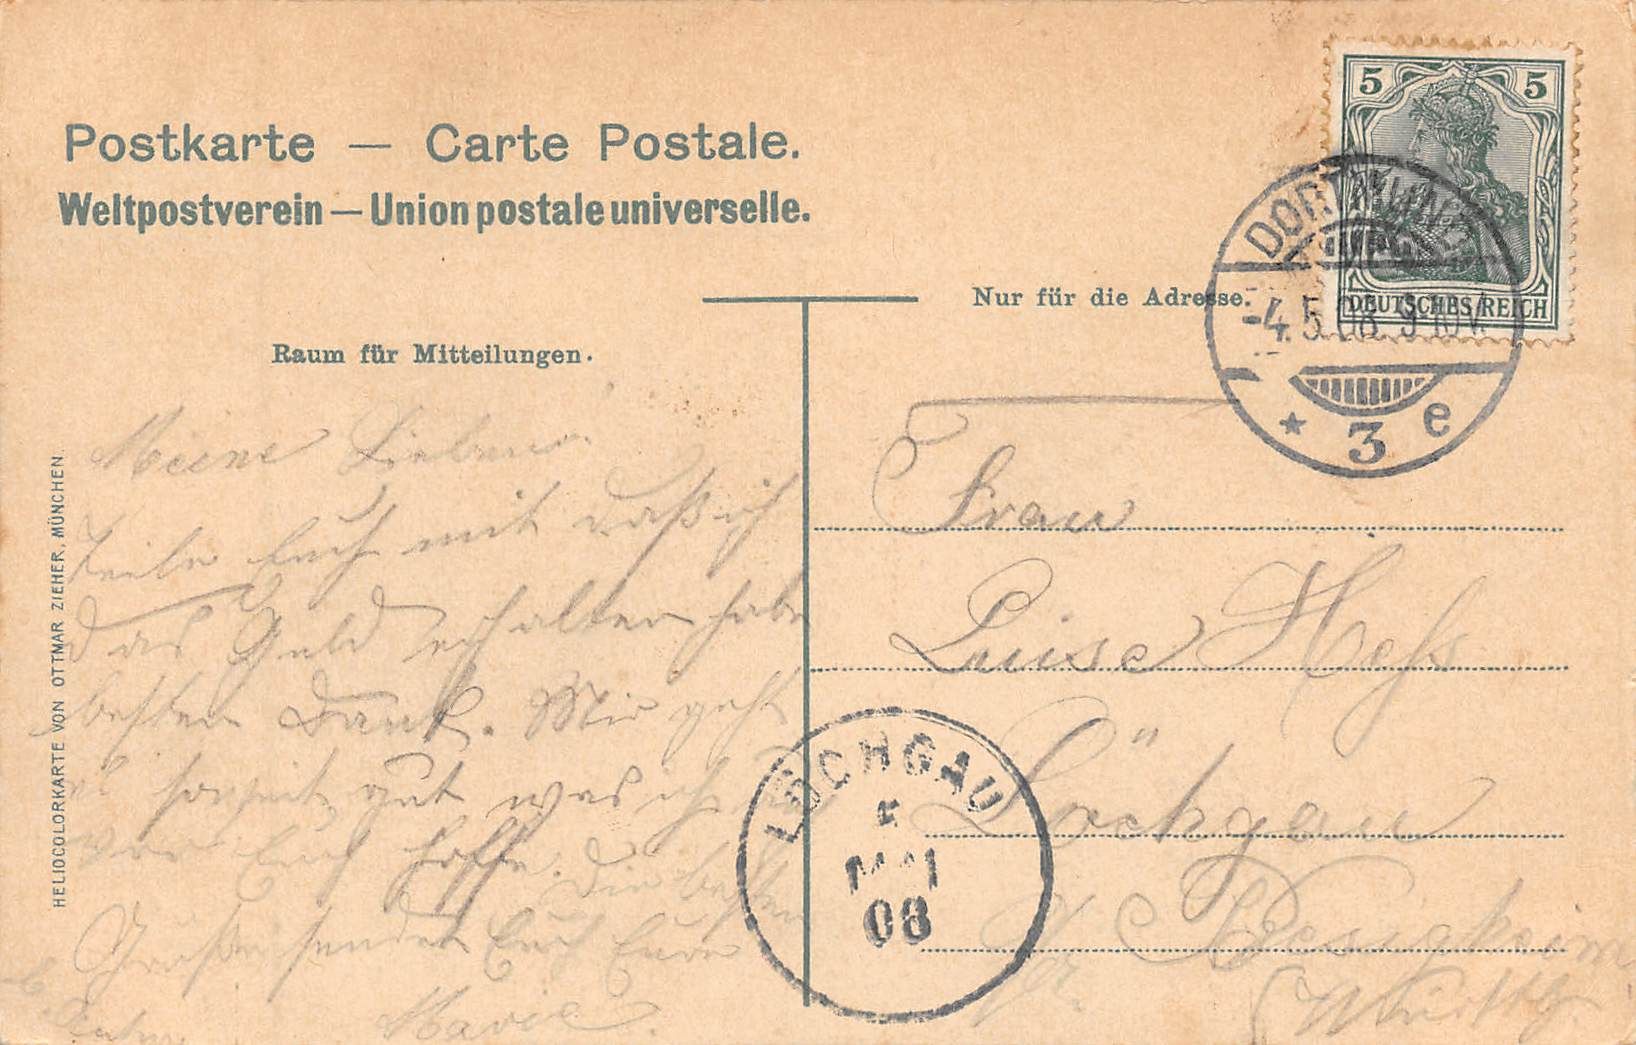 Postkarte — Carte Postale.
Weltpostverein — Union postale universelle.
Nur für die Adresse.
Raum für Mitteilungen.
HELIOCOLORKARTE VON OTTMAR ZIEHER, MÜNCHEN.
5 5
DEUTSCHES REICH
DORTMUND
-4.5.08. 9-10V.
* 3 e
Meine Lieben.
Teile Euch mit daß ich
das Geld erhalten habe
besten Dank. Mir geht
es soweit gut was ich
von Euch hoffe. Die besten
Grüße sendet Euch Eure
Marie.
Frau
Luise Heß
Löchgau
Besigheim
Württbg
LÖCHGAU
5
MAI
08